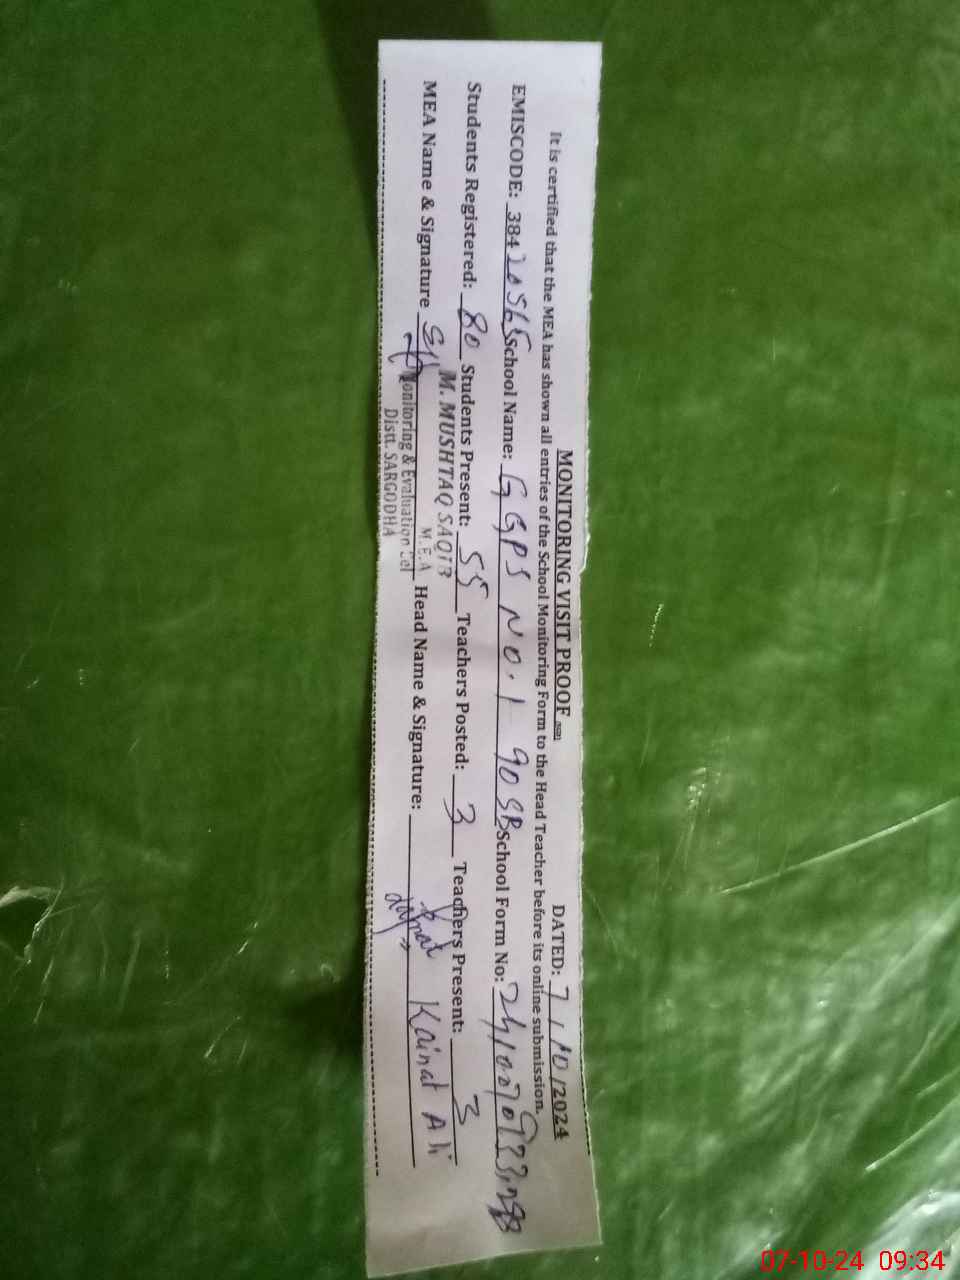 MONITORING VISIT PROOF
DATED: 7/10/2024
It is certified that the MEA has shown all entries of the School Monitoring Form to the Head Teacher before its online submission.
EMISCODE: 38420565 School Name: GGPS NO.1 90 SB School Form No:
Students Registered: 80 Students Present: 55 Teachers Posted: 3 Teachers Present: 3
MEA Name & Signature M. MUSHTAQ SAQIB Head Name & Signature: Kainat Ali
M.E.A
Monitoring & Evaluation Cel
Distt. SARGODHA
07-10-24 09:34